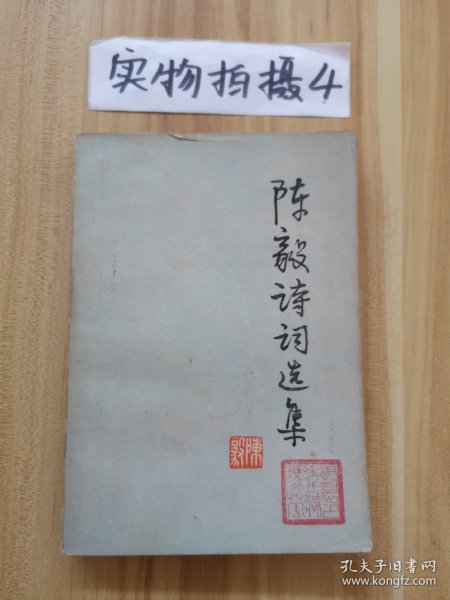 实物拍摄4
陈毅诗词选集
陳毅
孔夫子旧书网
www.kongfz.com